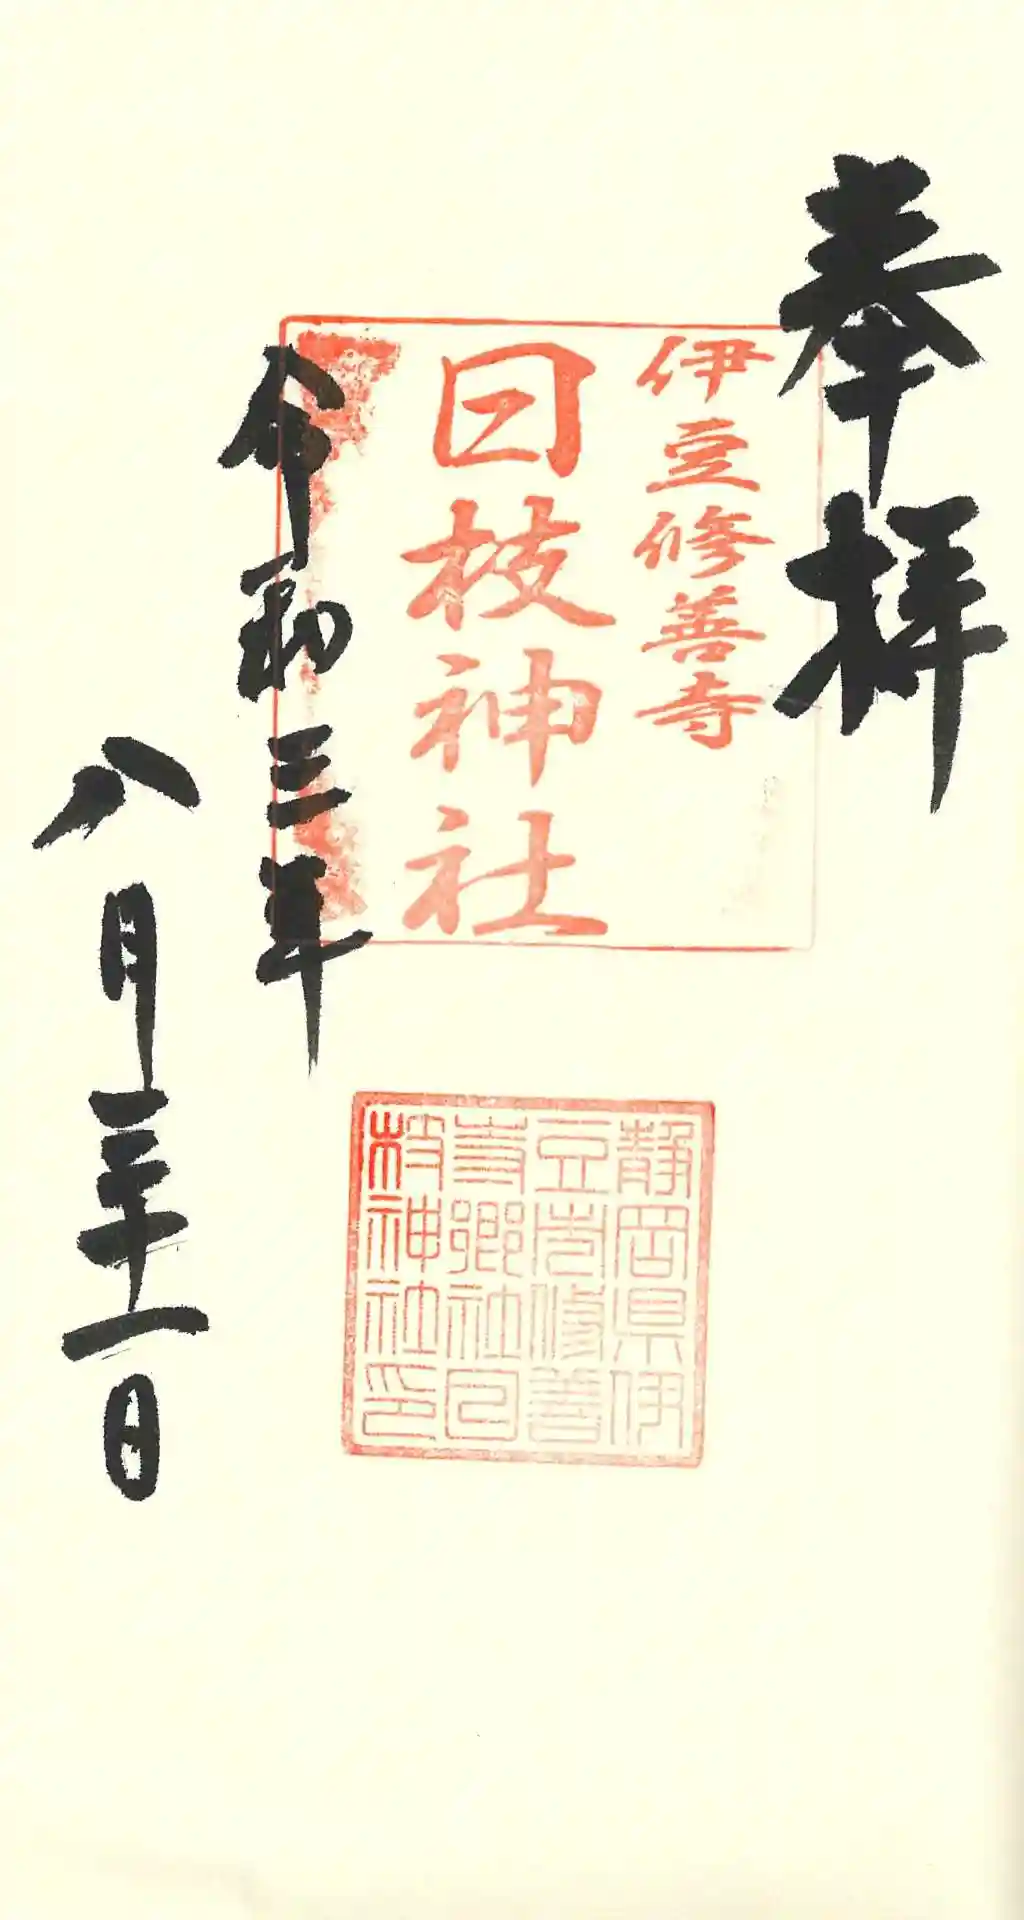 奉拝
伊豆修善寺
日枝神社
令和三年
八月三十一日
静岡県伊
豆市修善
寺郷社日
枝神社印